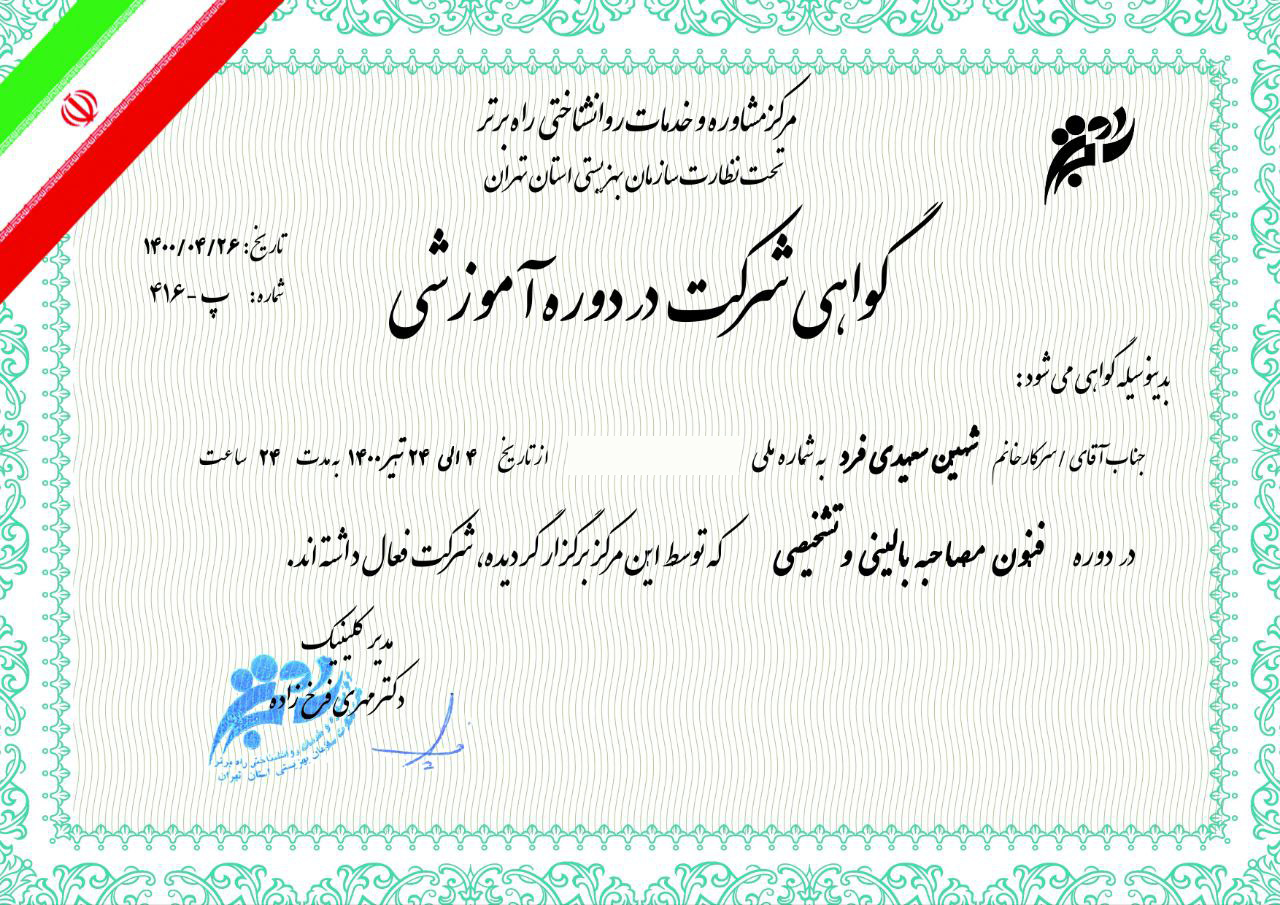 مرکز مشاوره و خدمات روانشناختی راه برتر
تحت نظارت سازمان بهزیستی استان تهران
تاریخ: ۱۴۰۰/۰۴/۲۶
شماره: پ-۴۱۶
گواهی شرکت در دوره آموزشی
بدینوسیله گواهی می شود:
جناب آقای / سرکار خانم شهین سعیدی فرد به شماره ملی از تاریخ ۴ الی ۲۴ تیر ۱۴۰۰ به مدت ۲۴ ساعت
در دوره فنون مصاحبه بالینی و تشخیصی که توسط این مرکز برگزار گردیده، شرکت فعال داشته اند.
مدیر کلینیک
دکتر مهری فرخ زاده
مشاوره و خدمات روانشناختی راه برتر
سازمان بهزیستی استان تهران